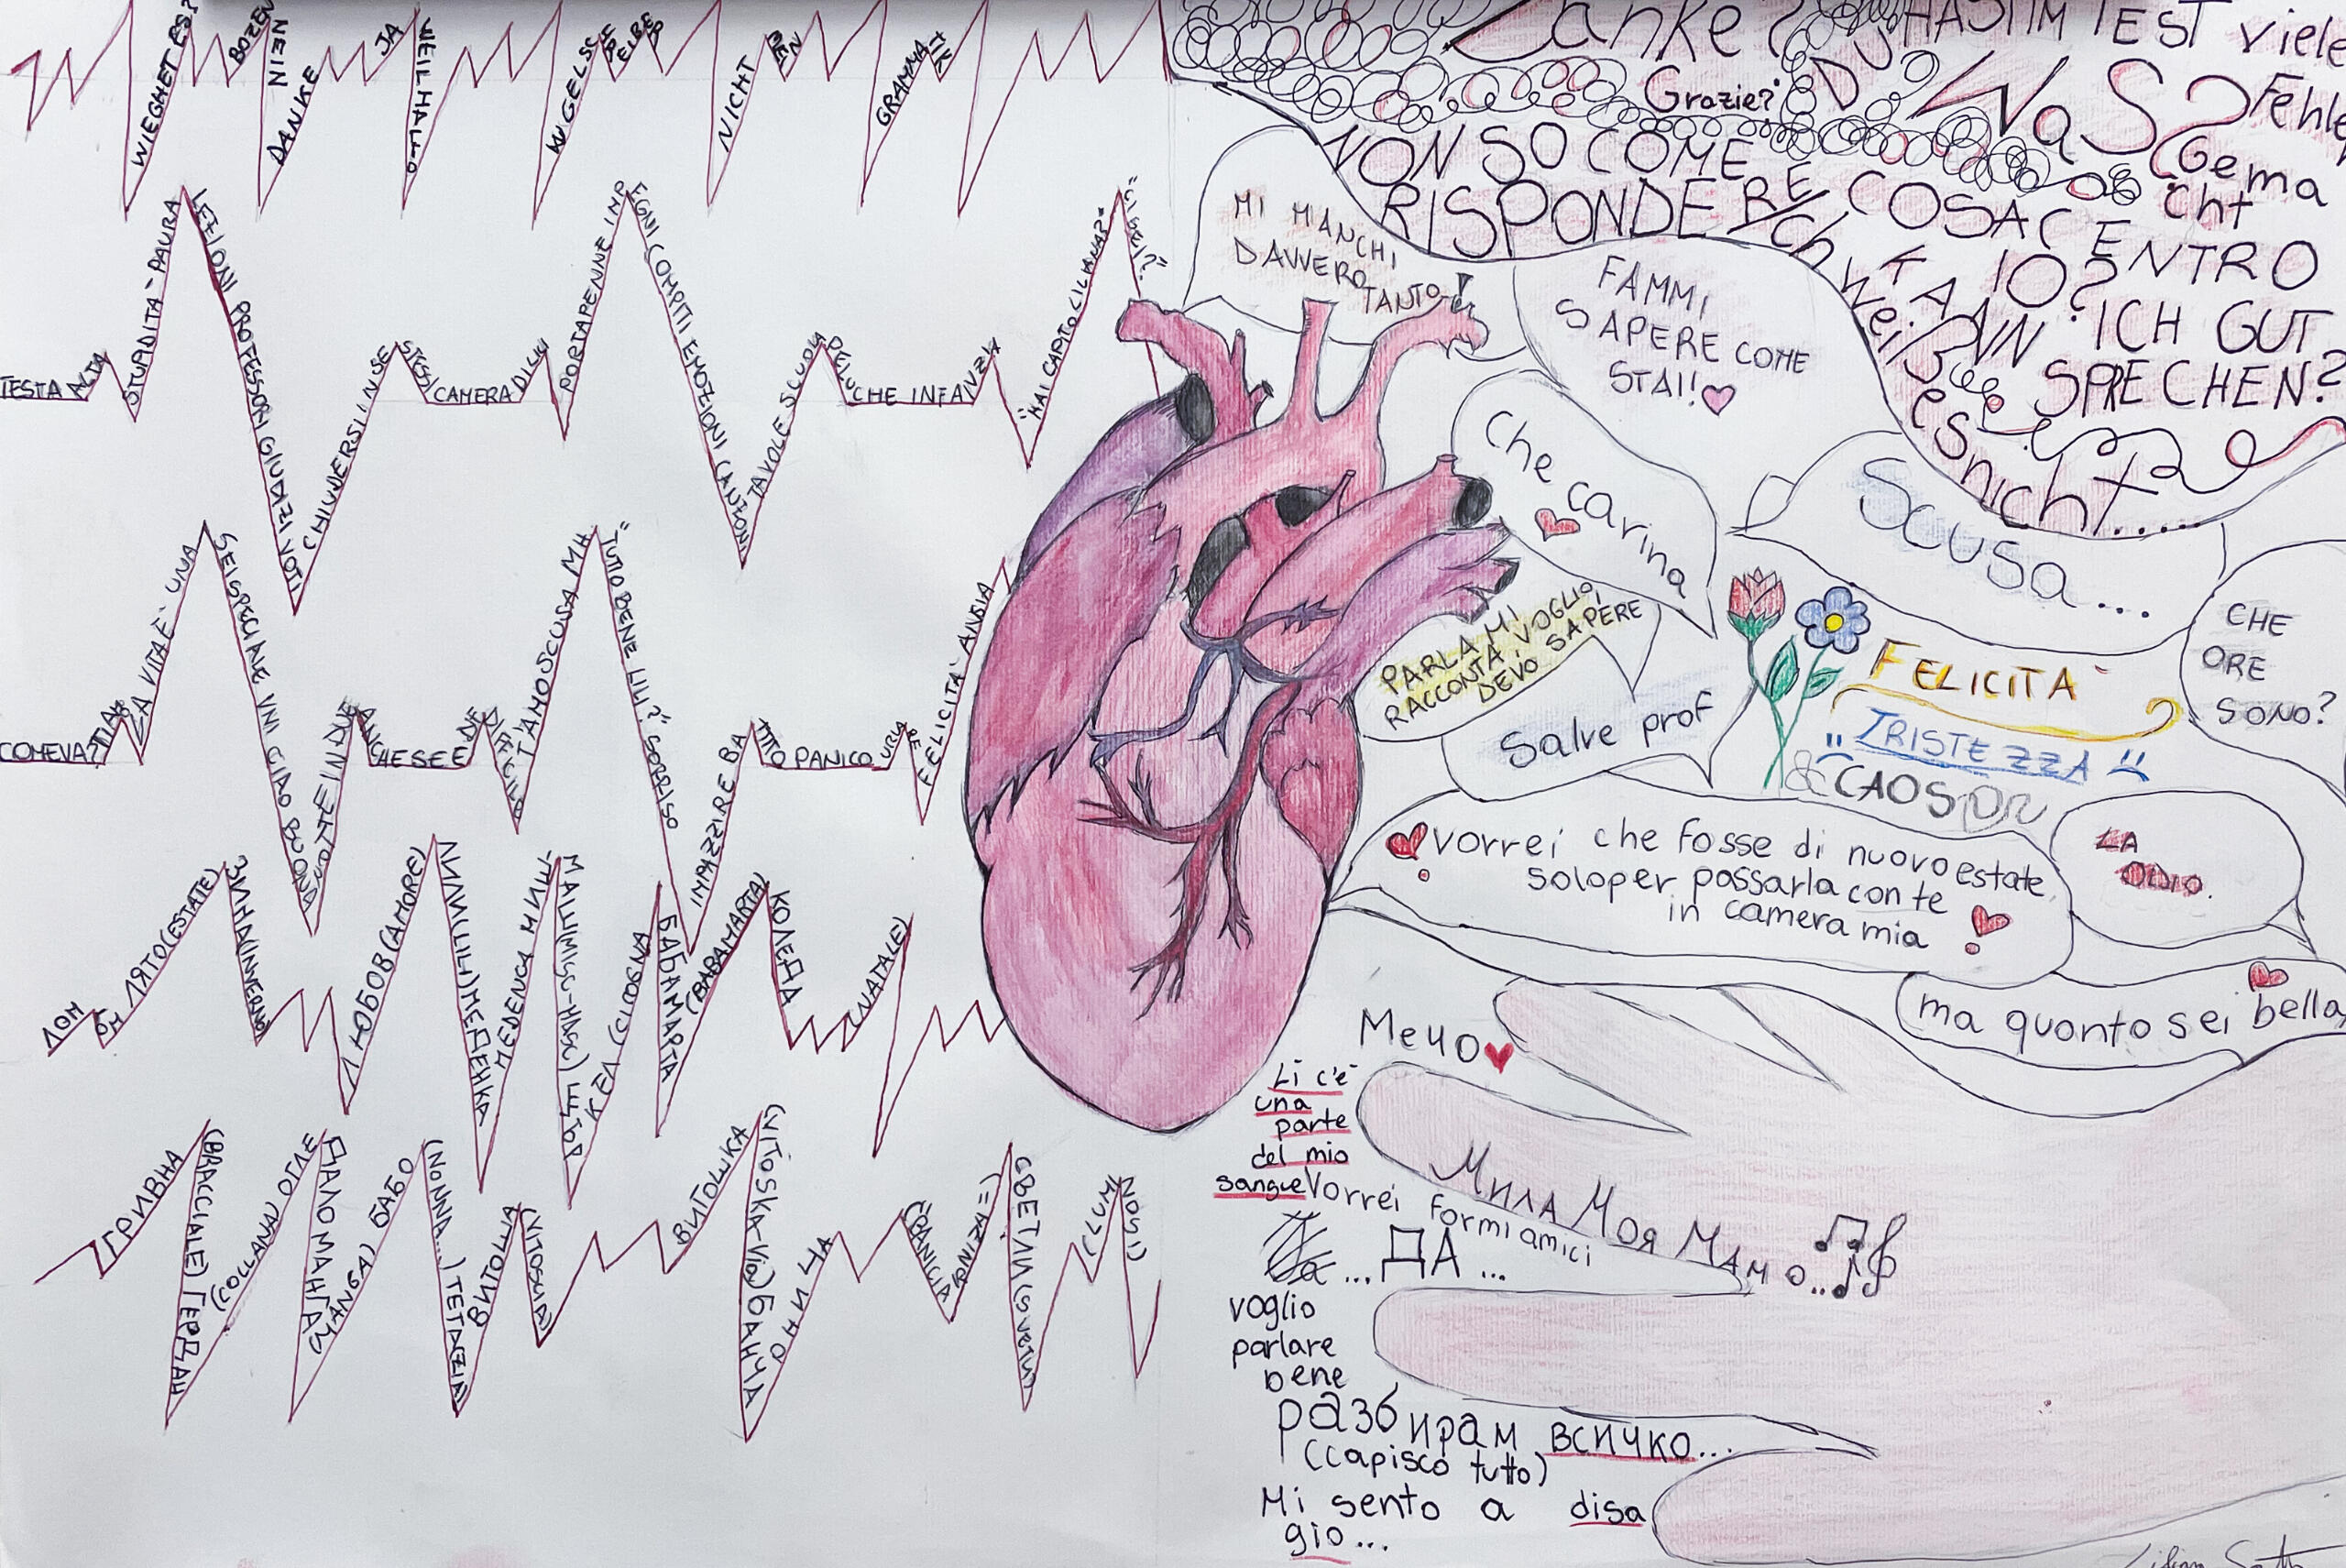 WIEGHET ES?
BOZEN
NEIN
DANKE
JA
WEIL HALLO
NICHT
GRAMMATIK
Danke?
DU HAST IM TEST viele
Grazie?
Was?
Fehler
Gema
cht
NON SO COME
RISPONDERE
COSA C'ENTRO
IO?
Ich weiß
es nicht.....
KANN ICH GUT
SPRECHEN?
TESTA ALTA
STUPIDITA' - PAURA
LEZIONI PROFESSORI GIUDIZI VOTI
CHIUDERSI IN SE
STESSI
CAMERA DI LILI
PORTAPENNE IMP
EGNI COMPITI EMOZIONI CANZONI
TAVOLE SCUOLA
PELUCHE INFANZIA
"HAI CAPITO LILIANA?"
"CI SEI?"
MI MANCHI
DAVVERO
TANTO!
FAMMI
SAPERE COME
STAI!!
Che carina
Scusa...
PARLAMI
RACCONTA, VOGLIO,
DEVO SAPERE
Salve prof
CHE
ORE
SONO?
FELICITÀ
TRISTEZZA
& CAOS
COME VA?
LA VITA E' UNA
SEI SPECIALE UNI CIAO BUONA
NOTTE INTINDUE
ANCHE SE E'
DIFFICILE
TI AMO SCUSA MH
"TUTTO BENE LILI?" SORRISO
IMPAZZIRE BA
TTITO PANICO URLA
RE
FELICITA' ANSIA
vorrei che fosse di nuovo estate
solo per passarla con te
in camera mia
LA
ODIO.
ma quanto sei bella
ДОМ
ЛЯТО (ESTATE)
ЗИМА (INVERNO)
ЛЮБОВ (AMORE)
ЛИЛИ (LILI) МЕДЕНКА
MEDENCA МИШ-
МАШ (MISC-MASC) ЩЪР
КЕЛ (CICOGNA
БАБА МАРТА
(BABA MARTA)
КОЛЕДА
(NATALE)
Мечо
Li c'è
una
parte
del mio
sangue
Vorrei formi amici
Мила Моя Мамо...
... ДА ...
voglio
parlare
bene
разбирам всичко...
(capisco tutto)
Mi sento a disa
gio...
ГРИВНА
(BRACCIALE) ГЕРДАН
(COLLANA) ОГЛЕ
ДАЛО МАНГАЗ
БАБО
(NONNA...)
ВИТОША
(VITOSCIA)
ВИТОШКА
(VITOSKA-VIA) БАНЧА
ОНИЦА
СВЕТЛИ